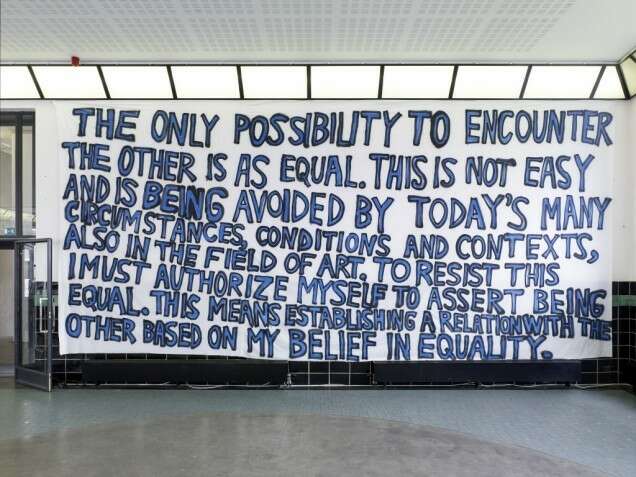 THE ONLY POSSIBILITY TO ENCOUNTER
THE OTHER IS AS EQUAL. THIS IS NOT EASY
AND IS BEING AVOIDED BY TODAY'S MANY
CIRCUMSTANCES, CONDITIONS AND CONTEXTS,
ALSO IN THE FIELD OF ART. TO RESIST THIS
I MUST AUTHORIZE MYSELF TO ASSERT BEING
EQUAL. THIS MEANS ESTABLISHING A RELATION WITH THE
OTHER BASED ON MY BELIEF IN EQUALITY.